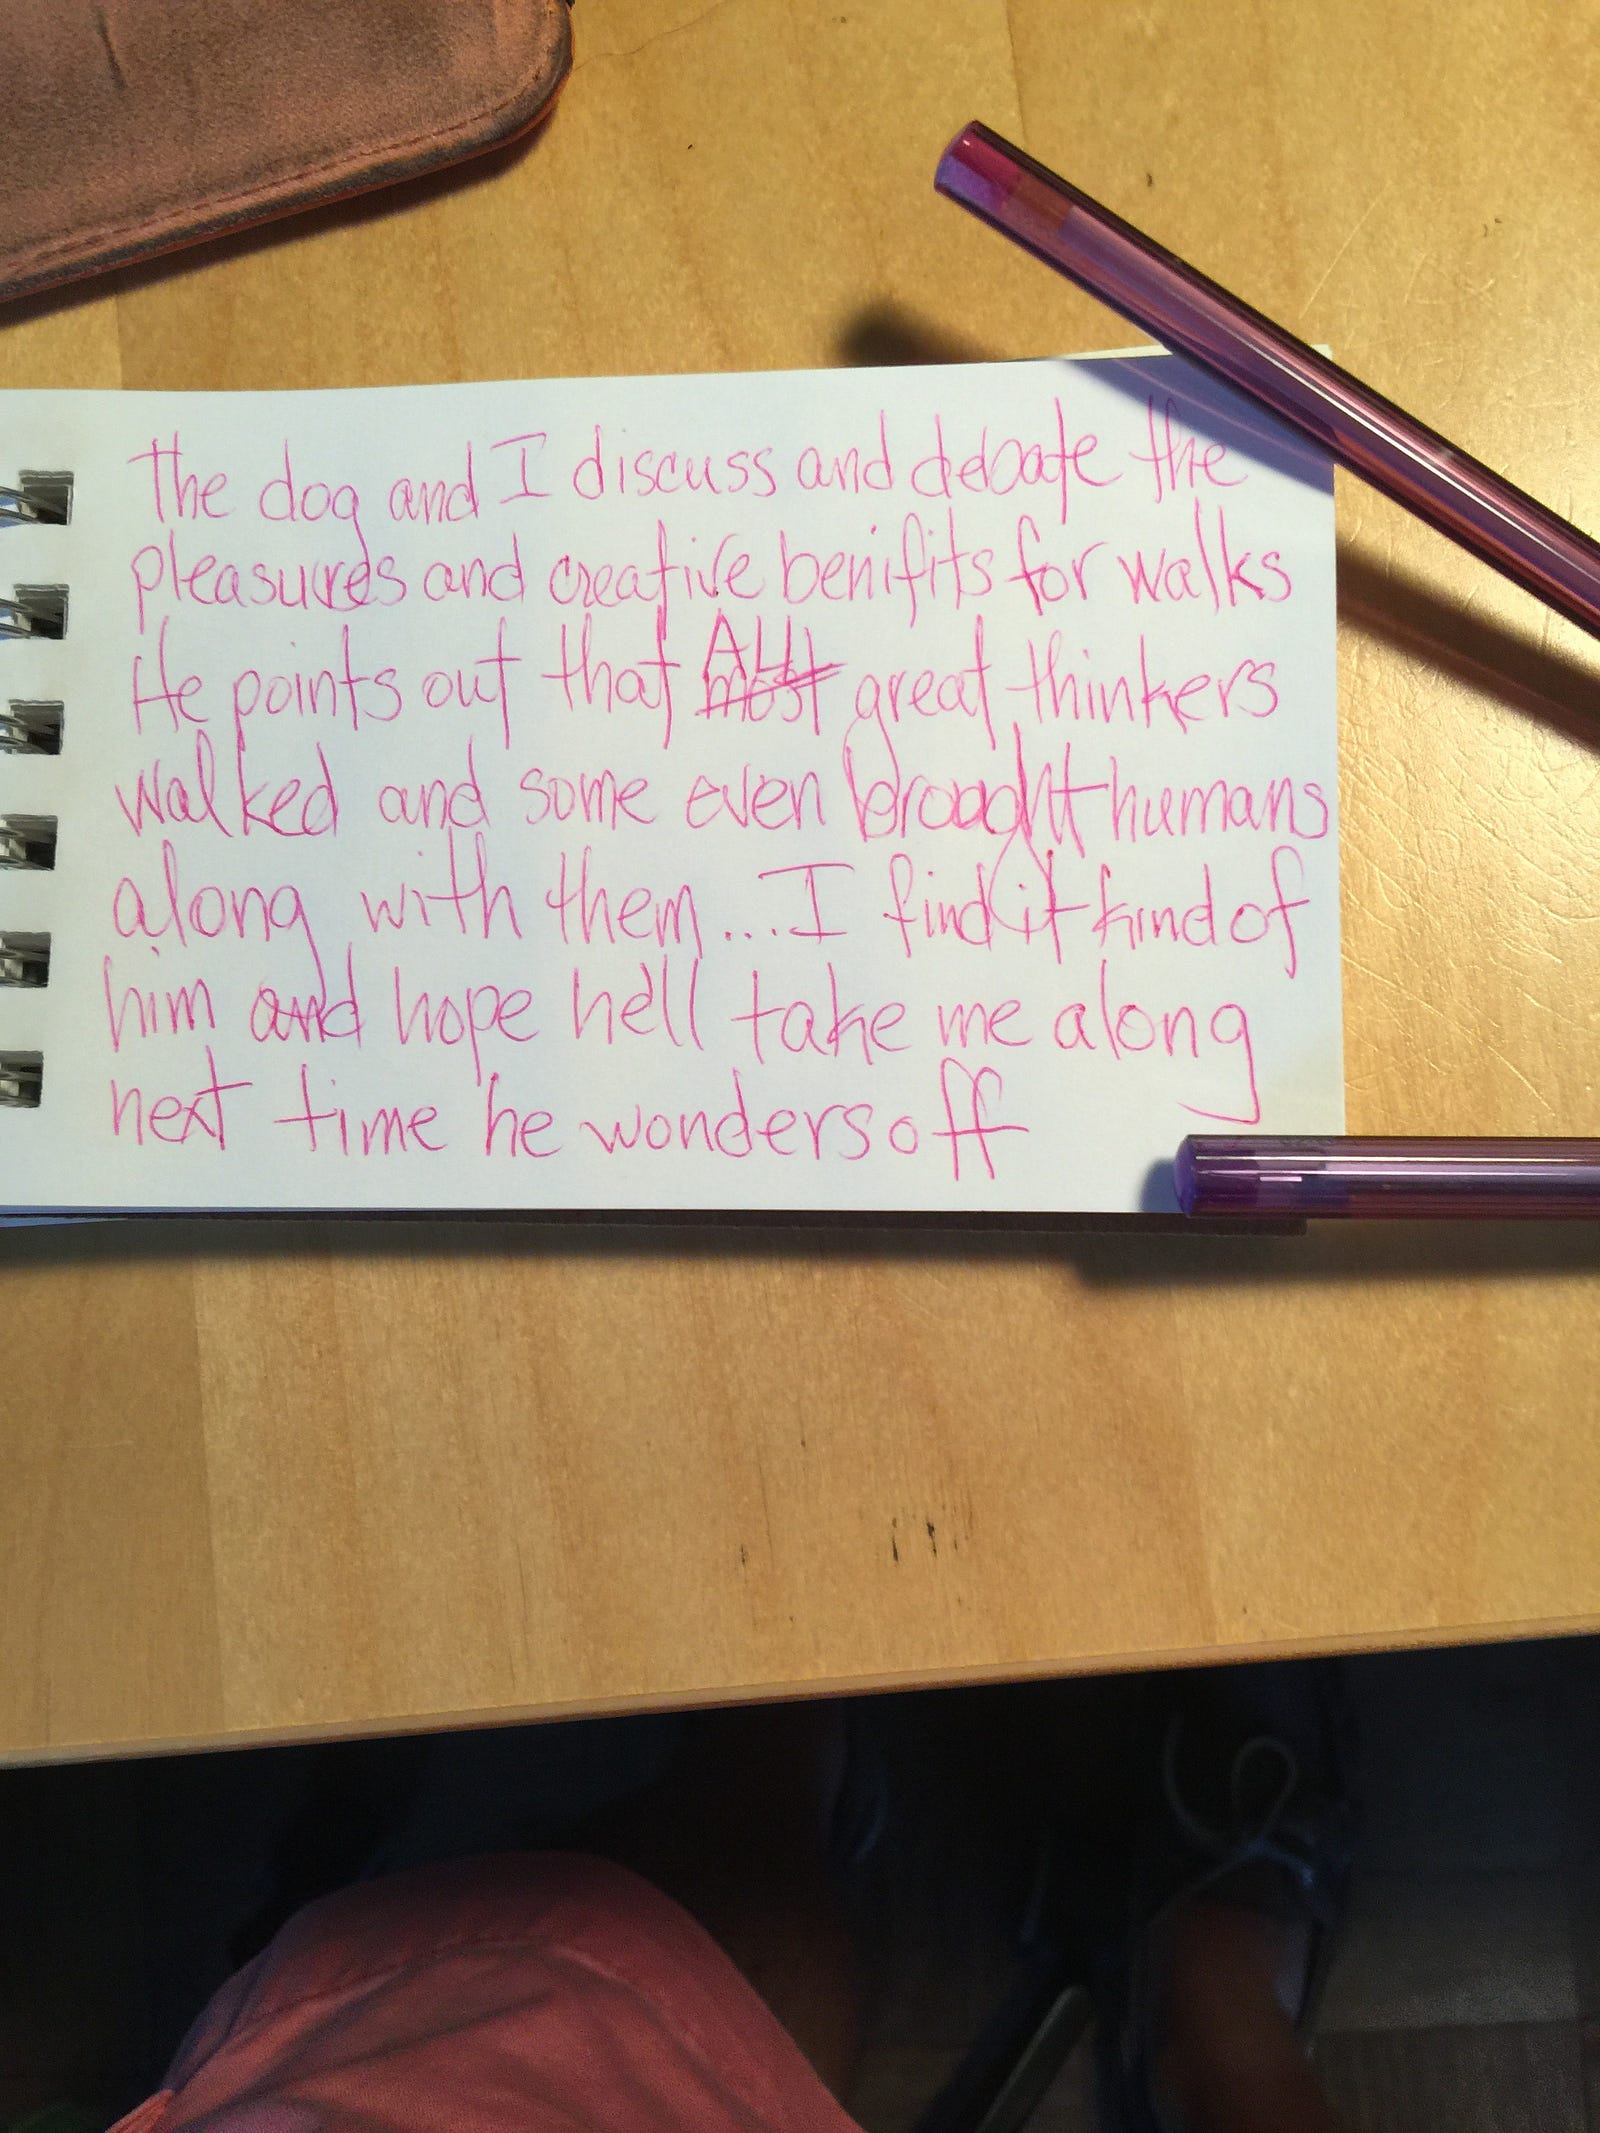 The dog and I discuss and debate the
pleasures and creative benifits for walks
He points out that All most great thinkers
walked and some even brought humans
along with them...I find it kind of
him and hope hell take me along
next time he wonders off